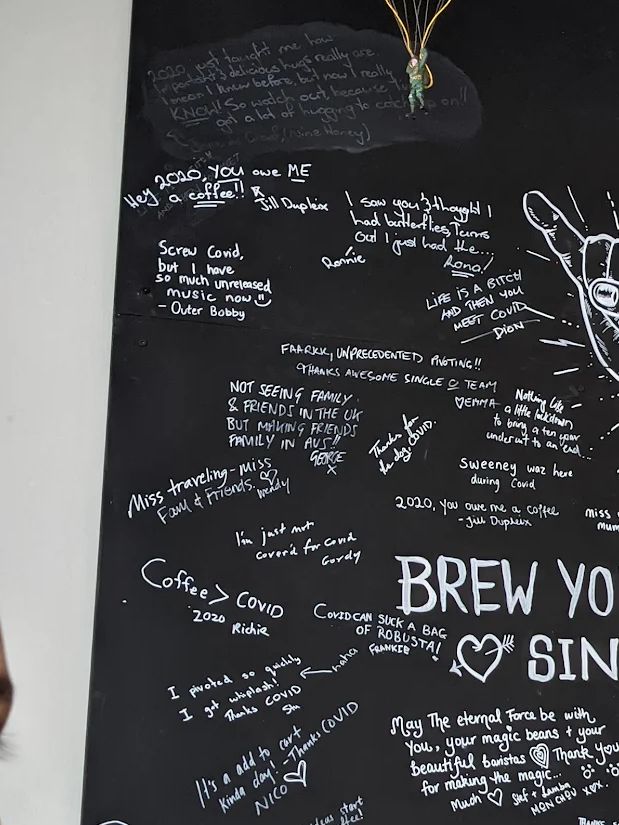 2020 just taught me how
important & delicious hugs really are.
I mean I knew before, but now I really
KNOW!! So watch out, because
got a lot of hugging to catch up on!!
Honey)
Hey 2020, YOU owe ME
a coffee!!
Jill Dupleix
I saw you & thought I
had butterflies, Turns
out I just had the...
Rona!
Ronnie
Screw Covid,
but I have
so much unreleased
music now
- Outer Bobby
LIFE IS A BITCH
AND THEN YOU
MEET COVID
DION
FAARKK, UNPRECEDENTED PIVOTING!!
THANKS AWESOME SINGLE O TEAM
EMMA
NOT SEEING FAMILY
& FRIENDS IN THE UK
BUT MAKING FRIENDS
FAMILY IN AUS!!
GEORGE
X
Nothing like
a little lockdown
to bring a ten year
undercut to an end...
Thanks for
the dog, COVID.
Sweeney waz here
during Covid
Miss traveling - miss
Fam & Friends.
Wendy
2020, you owe me a coffee
- Jill Dupleix
miss
mum
I'm just not
cover'd for covid
Gordy
Coffee > COVID
2020
Richie
BREW YO
SIN
COVID CAN SUCK A BAG
OF ROBUSTA!
FRANKIE
haha
I pivoted so quickly
I got whiplash!
Thanks COVID
Stu
It's a add to cart
kinda day! - Thanks COVID
NICO
May The eternal Force be with
You, your magic beans & your
beautiful baristas Thank you
for making the magic...
Much
Stef &
MON CHOU xox.
ideas start